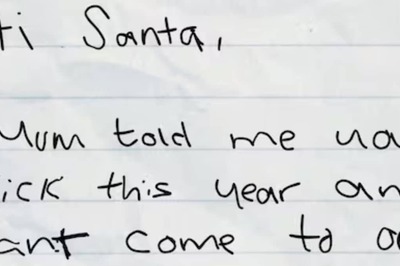 ti Santa,
Mum told me you
ick this year an
ant come to o